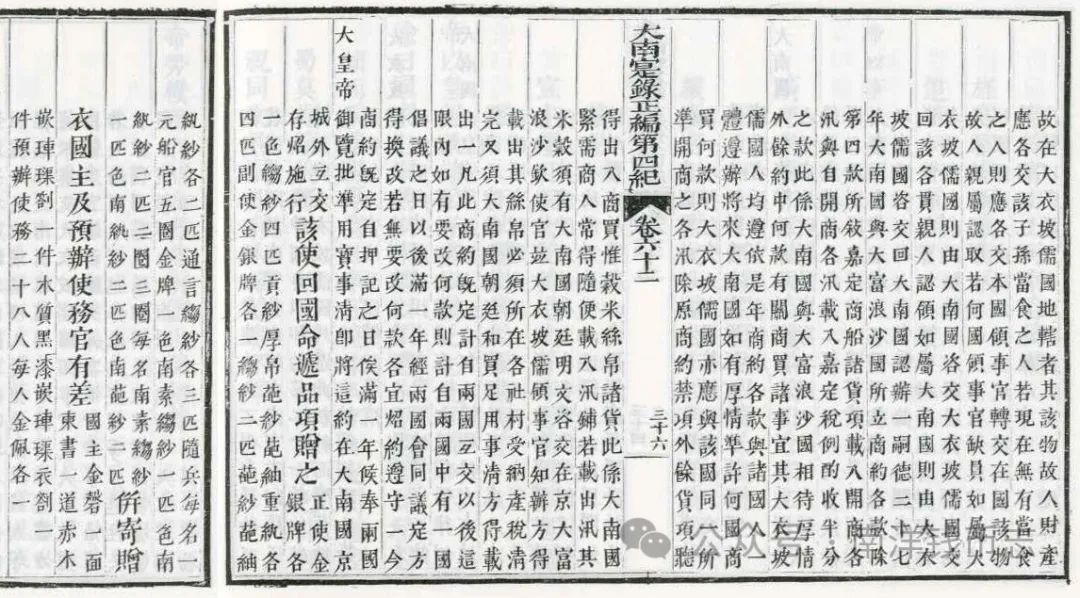 故在大衣坡儒國地轄者其該物故人財產
應各交該子孫當食之人若現在無有當食
之人則應各交本國領事官轉交在國該物
故人親屬認取若何國領事官缺員具如屬大
衣坡儒國則由大南國咨交大衣坡儒國交
回該各貫親人認領如屬大南國則由大衣
坡儒國咨交回大南國認辦一嗣德二十七
年大南國與大富浪沙國所立商約各款除
第四款所敘嘉定商船諸貨項載入開商各
汛與自開商各汛載入嘉定稅例酌收半分
之款此係大南國與大富浪沙國相待厚情
外餘約中何款有關商買諸事宜其大衣坡
儒國人均遵依是年商約各款與諸國人一
體遵辦將來大南國如有厚情準許何國商
買何款則大衣坡儒國亦應與該國同一所
準開商之各汛除原商約禁項外餘貨項聽
大南寔錄正編第四紀 卷六十二 三十六
得出入商買惟穀米絲帛諸貨此係大南國
緊需商人常得隨便載入汛鋪若載出汛其
米穀須有大南國朝廷明文咨交在京大富
浪沙欽使官並大衣坡儒領事官知辦方得
載出其絲帛必須所在各社村受納產稅清
完又須大南國朝廷和買足用事清方得載
出一凡此商約既定計自兩國互交以後這
限內如有要改何款則計自兩國中有一國
倡議之日以後滿一年經兩國會同議定方
得換改若無要改何款各宜炤約遵守一今
商約既定自押記之日俟滿一年候奉兩國
大皇帝御覽批準用寶事清卽將這約在大南國京
城外互交
存炤施行
該使回國命遞品項贈之
正使金
銀牌各
一色縐紗四匹貢紗厚帛葩紗葩紬重紈各
四匹副使金銀牌各一縐紗二匹葩紗葩紬
紈紗各二匹通言縐紗各三匹隨兵每名二
元船官五圈金牌一色南素縐紗一匹色南
紈紗二匹二圈三圈每名南素縐紗
一匹色南紈紗二匹色南葩紗二匹
併寄贈
衣國主及預辦使務官有差
國主金磬一面
東書一道赤木
嵌硨磲劄一件木質黑漆嵌硨磲衣劄二
件預辦使務二十八人每人金佩各一
公众号